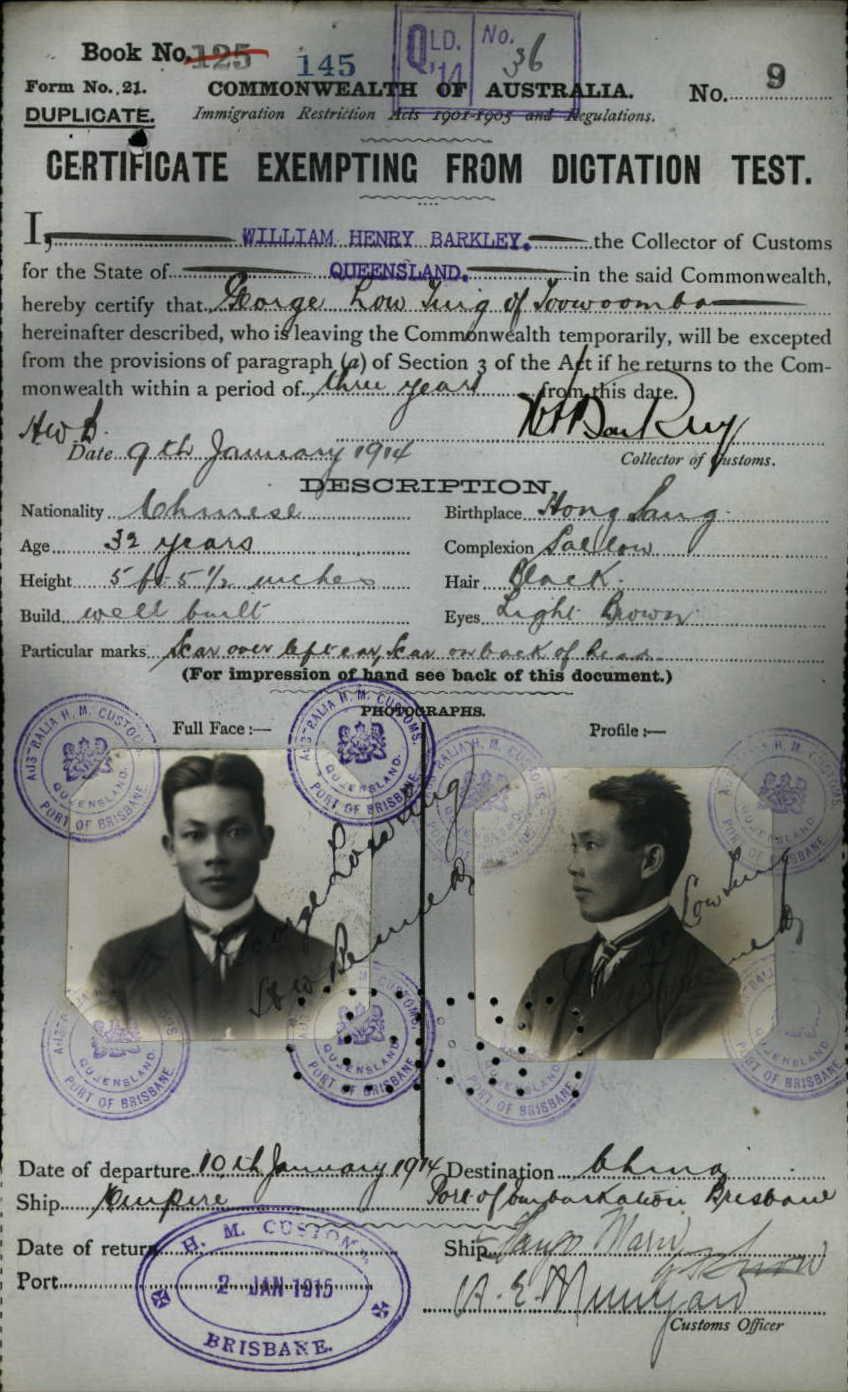 Book No. 125 145
QLD. '14 No. 36
Form No. 21.
COMMONWEALTH OF AUSTRALIA.
No. 9
DUPLICATE.
Immigration Restriction Acts 1901-1905 and Regulations.
CERTIFICATE EXEMPTING FROM DICTATION TEST.
I, WILLIAM HENRY BARKLEY. the Collector of Customs
for the State of QUEENSLAND. in the said Commonwealth,
hereby certify that George Low Sing of Toowoomba
hereinafter described, who is leaving the Commonwealth temporarily, will be excepted
from the provisions of paragraph (a) of Section 3 of the Act if he returns to the Com-
monwealth within a period of three years from this date.
WH Barkley
Date 9th January 1914
Collector of Customs.
DESCRIPTION
Nationality Chinese Birthplace Hong Sang
Age 32 years Complexion Sallow
Height 5 ft 5 1/2 inches Hair Black.
Build well built Eyes Light Brown
Particular marks Scar over left ear, Scar on back of head
(For impression of hand see back of this document.)
PHOTOGRAPHS.
Full Face :— Profile :—
AUSTRALIA H. M. CUSTOMS.
QUEENSLAND.
PORT OF BRISBANE
AUSTRALIA H. M. CUSTOMS.
QUEENSLAND.
PORT OF BRISBANE
George Low Sing
Low Sing
QUEENSLAND.
PORT OF BRISBANE
QUEENSLAND.
PORT OF BRISBANE
Date of departure 10th January 1914 Destination China
Ship Empire Port of embarkation Brisbane
Date of return Ship
Port
H. M. CUSTOMS
2 JAN 1915
BRISBANE.
Customs Officer